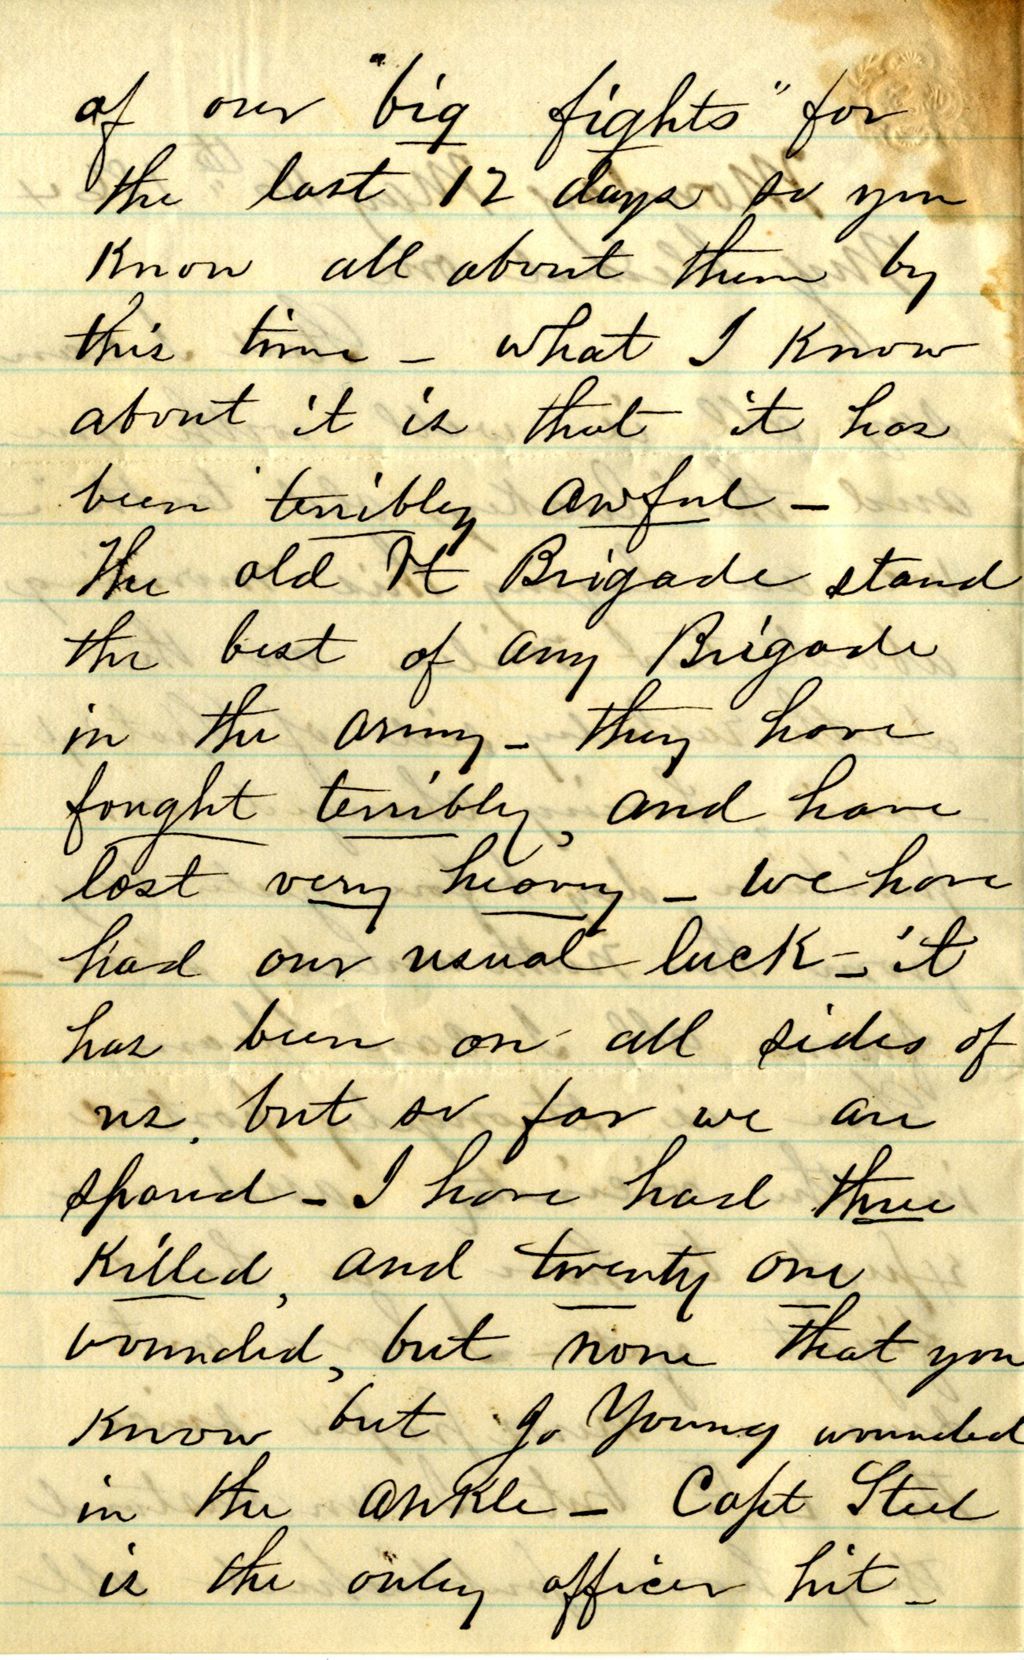 of our "big fights" for
the last 12 days so you
know all about them by
this time - what I know
about it is that it has
been terribly awful -
The old Vt Brigade stand
the best of any Brigade
in the army - they have
fought terribly, and have
lost very heavy - we have
had our usual luck - it
has been on all sides of
us. but so far we are
spared - I have had three
killed, and twenty one
wounded, but none that you
know but Jo Young wounded
in the ankle - Capt Steel
is the only officer hit -